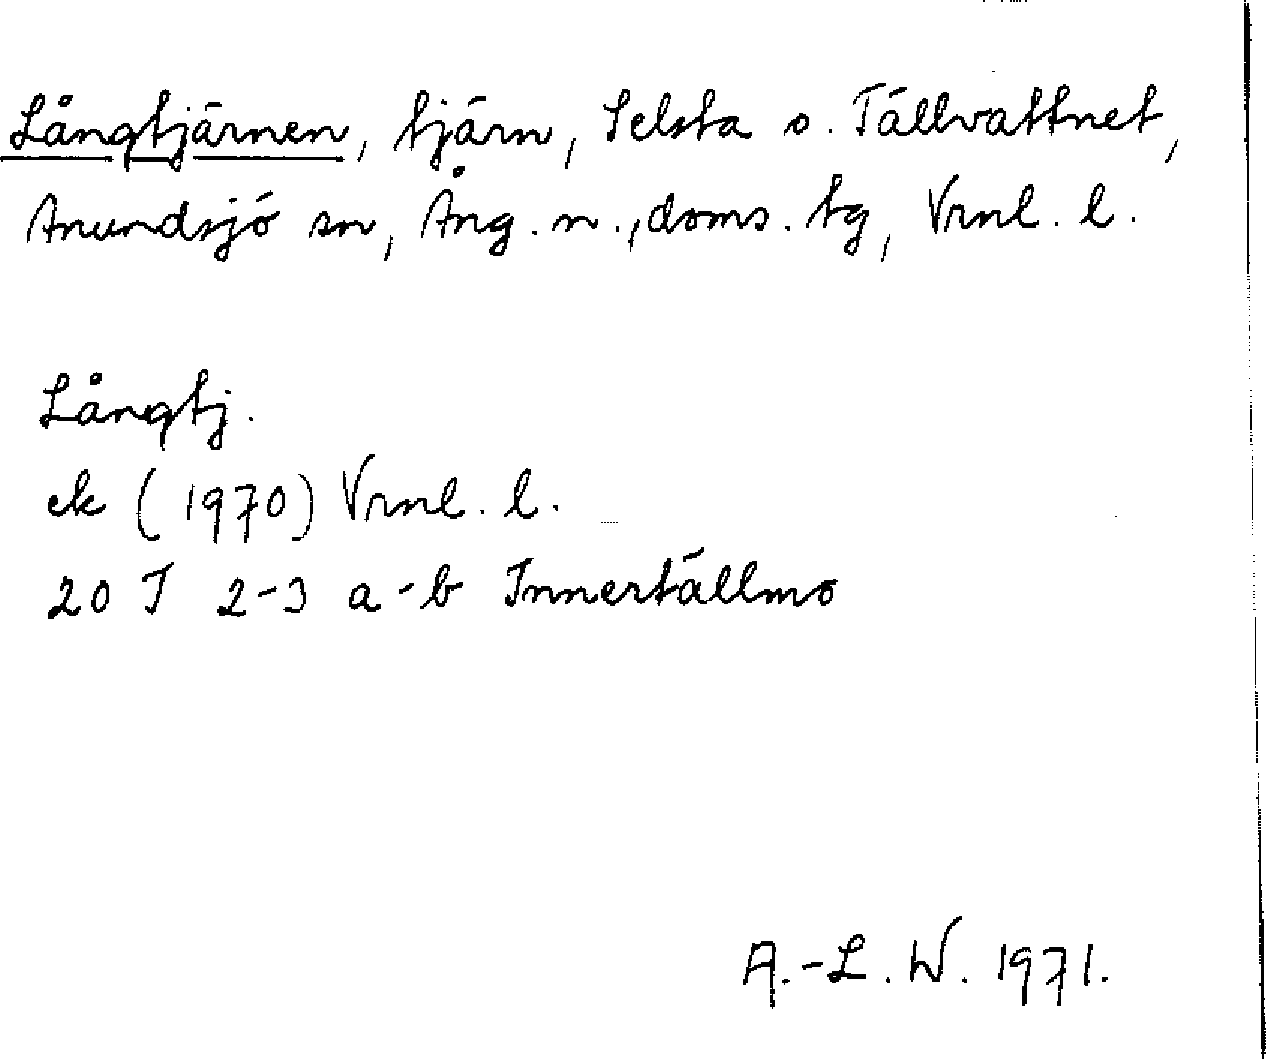 Långtjärnen, tjärn, Selsta o. Tällvattnet,
Anundsjö sn, Ång. n., doms. tg, Vrnl. l.
Långtj.
ek (1970) Vrnl. l.
20 J 2-3 a-b Innertällmo
A.-L. W. 1971.